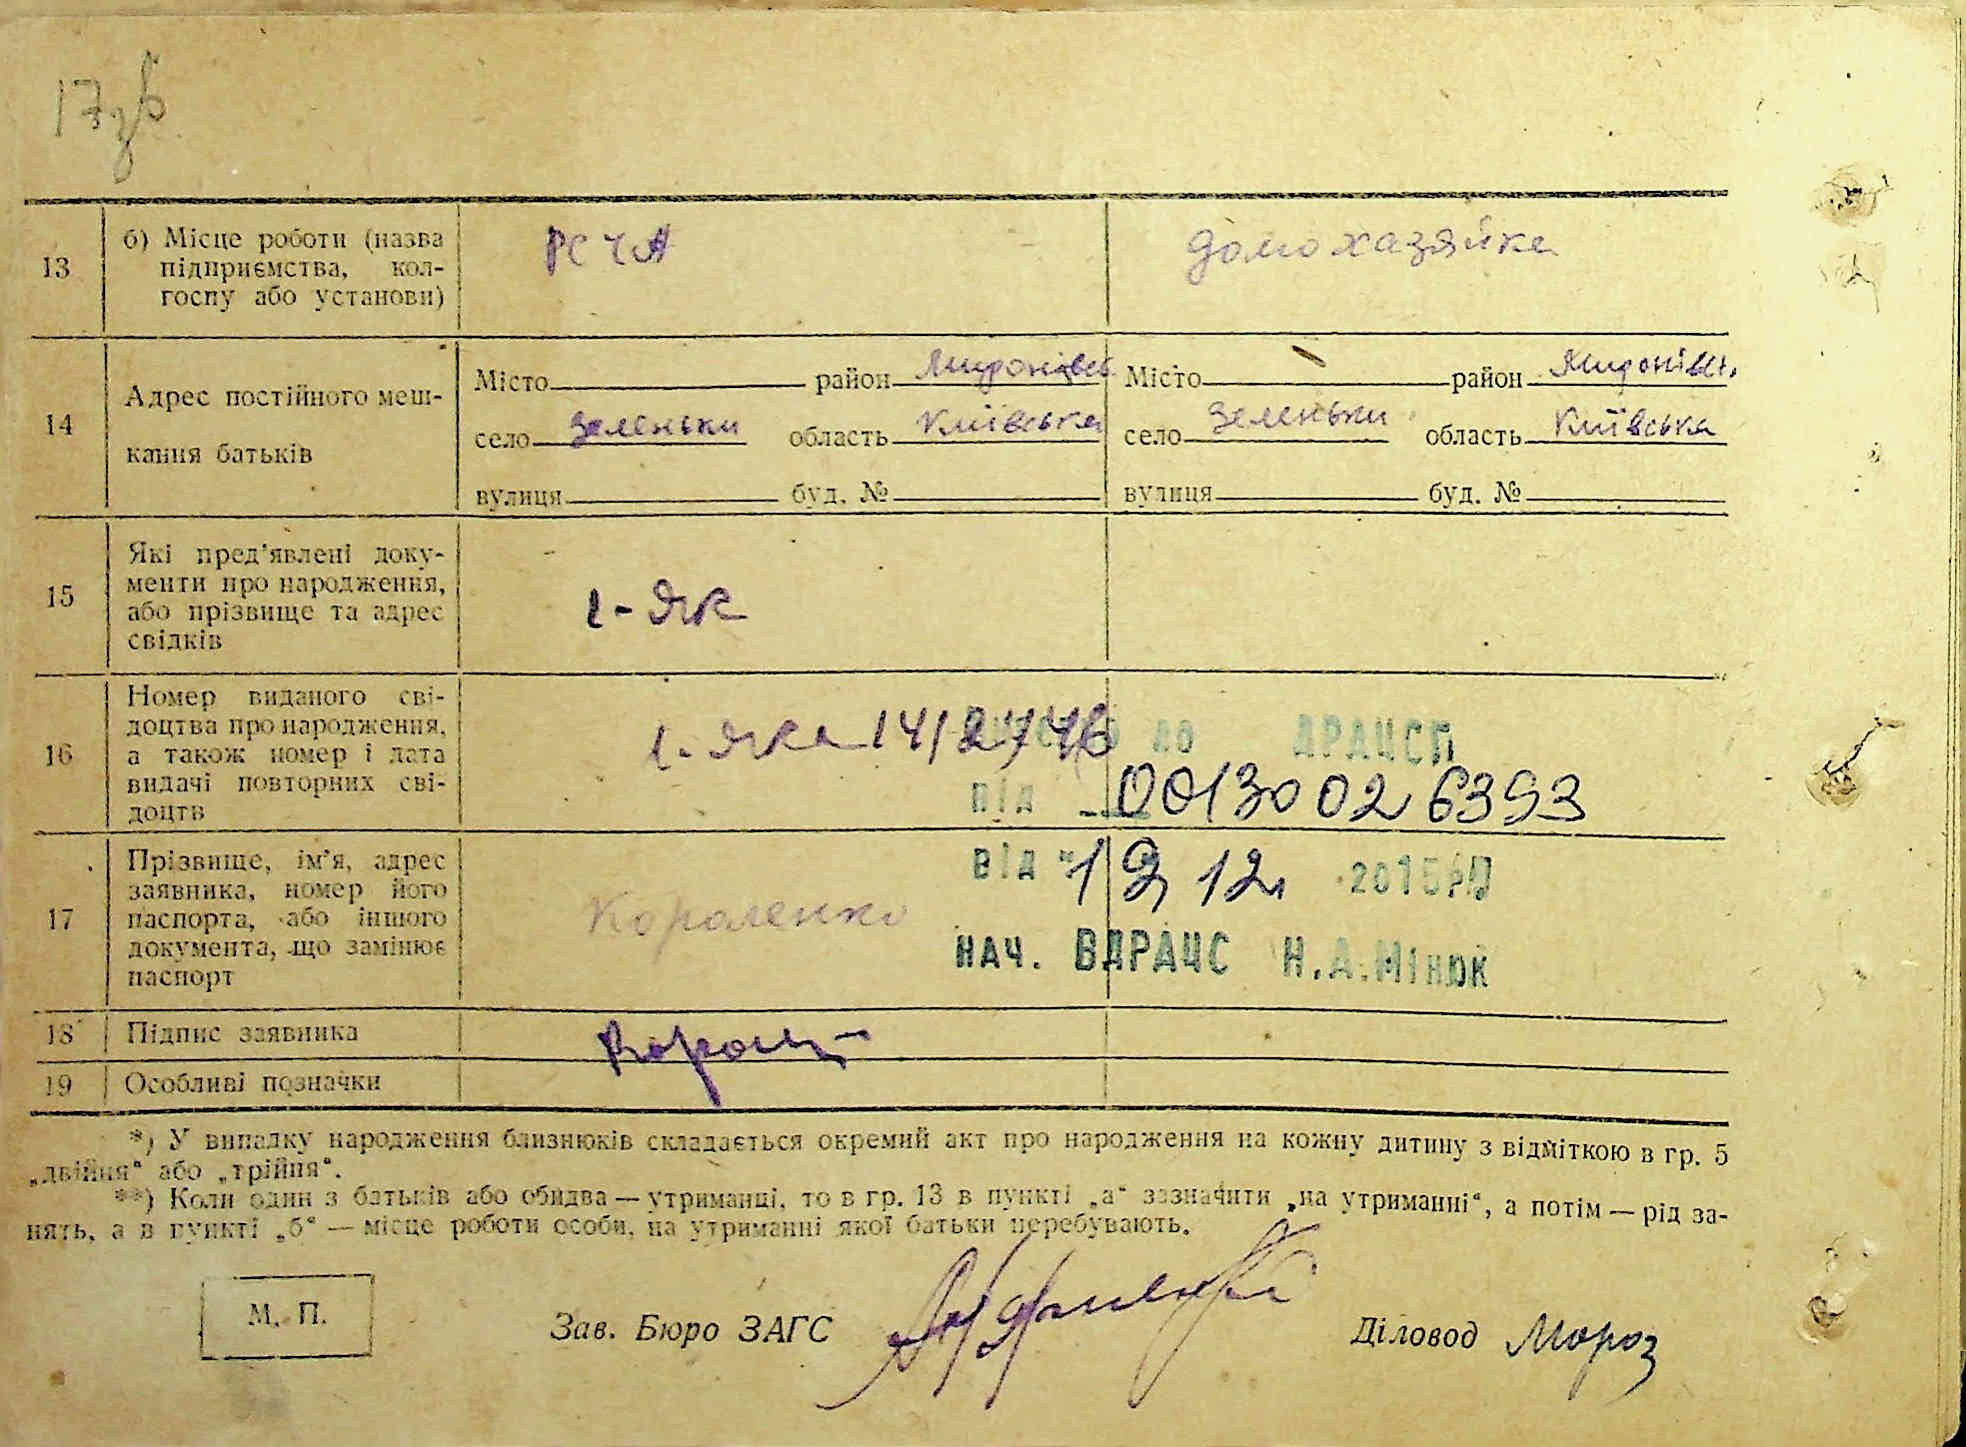 17 зв
13 б) Місце роботи (назва РСЧА домохазяйка
підприємства, кол-
госпу або установи)
Місто район Миронівськ Місто район Миронівськ
14 Адрес постійного меш-
село Зеленьки область Київська село Зеленьки область Київська
кання батьків
вулиця буд. № вулиця буд. №
15 Які пред'явлені доку-
менти про народження,
або прізвище та адрес
свідків
16 Номер виданого сві-
доцтва про народження,
а також номер і дата
видачі повторних сві-
доцтв
14/2/46
до ДРАЦСП
під 00130026393
від "12 12 2015 р
нач. ВДРАЦС Н.А.Мінюк
17 Прізвище, ім'я, адрес
заявника, номер його
паспорта, або іншого Короленко
документа, що замінює
паспорт
18 Підпис заявника
19 Особливі позначки
*) У випадку народження близнюків складається окремий акт про народження на кожну дитину з відміткою в гр. 5
„двійня“ або „трійня“.
**) Коли один з батьків або обидва — утриманці, то в гр. 13 в пункті „а“ зазначити „на утриманні“, а потім — рід за-
нять, а в пункті „б“ — місце роботи особи, на утриманні якої батьки перебувають.
М. П. Зав. Бюро ЗАГС Діловод Мороз